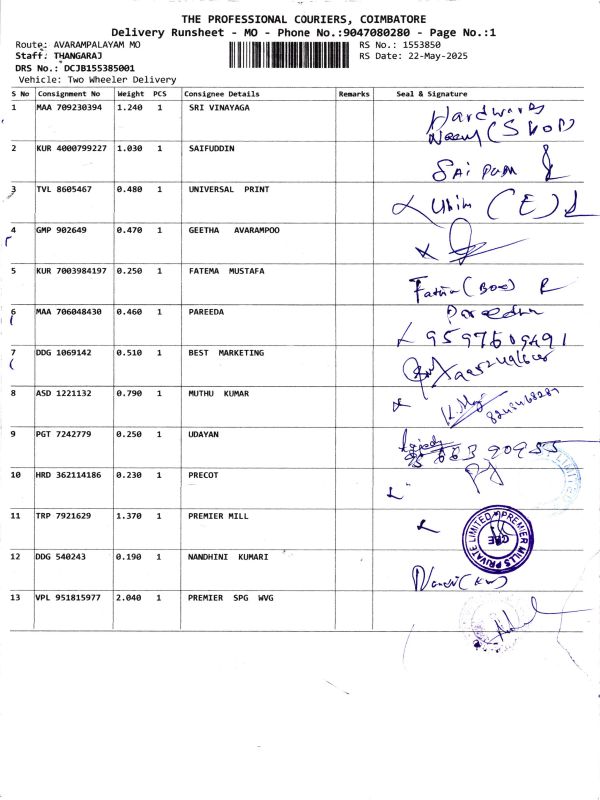 THE PROFESSIONAL COURIERS, COIMBATORE
Delivery Runsheet - MO - Phone No.:9047080280 - Page No.:1
Route: AVARAMPALAYAM MO RS No.: 1553850
Staff: THANGARAJ RS Date: 22-May-2025
DRS No.: DCJB155385001
Vehicle: Two Wheeler Delivery
S No Consignment No Weight PCS Consignee Details Remarks Seal & Signature
1 MAA 709230394 1.240 1 SRI VINAYAGA Hardwares
(SHOP)
2 KUR 4000799227 1.030 1 SAIFUDDIN
3 TVL 8605467 0.480 1 UNIVERSAL PRINT (E)
4 GMP 902649 0.470 1 GEETHA AVARAMPOO
5 KUR 7003984197 0.250 1 FATEMA MUSTAFA
6 MAA 706048430 0.460 1 PAREEDA
7 DDG 1069142 0.510 1 BEST MARKETING
8 ASD 1221132 0.790 1 MUTHU KUMAR
9 PGT 7242779 0.250 1 UDAYAN
10 HRD 362114186 0.230 1 PRECOT
LIMITED
11 TRP 7921629 1.370 1 PREMIER MILL
PREMIER MILLS PRIVATE LIMITED
12 DDG 540243 0.190 1 NANDHINI KUMARI
13 VPL 951815977 2.040 1 PREMIER SPG WVG